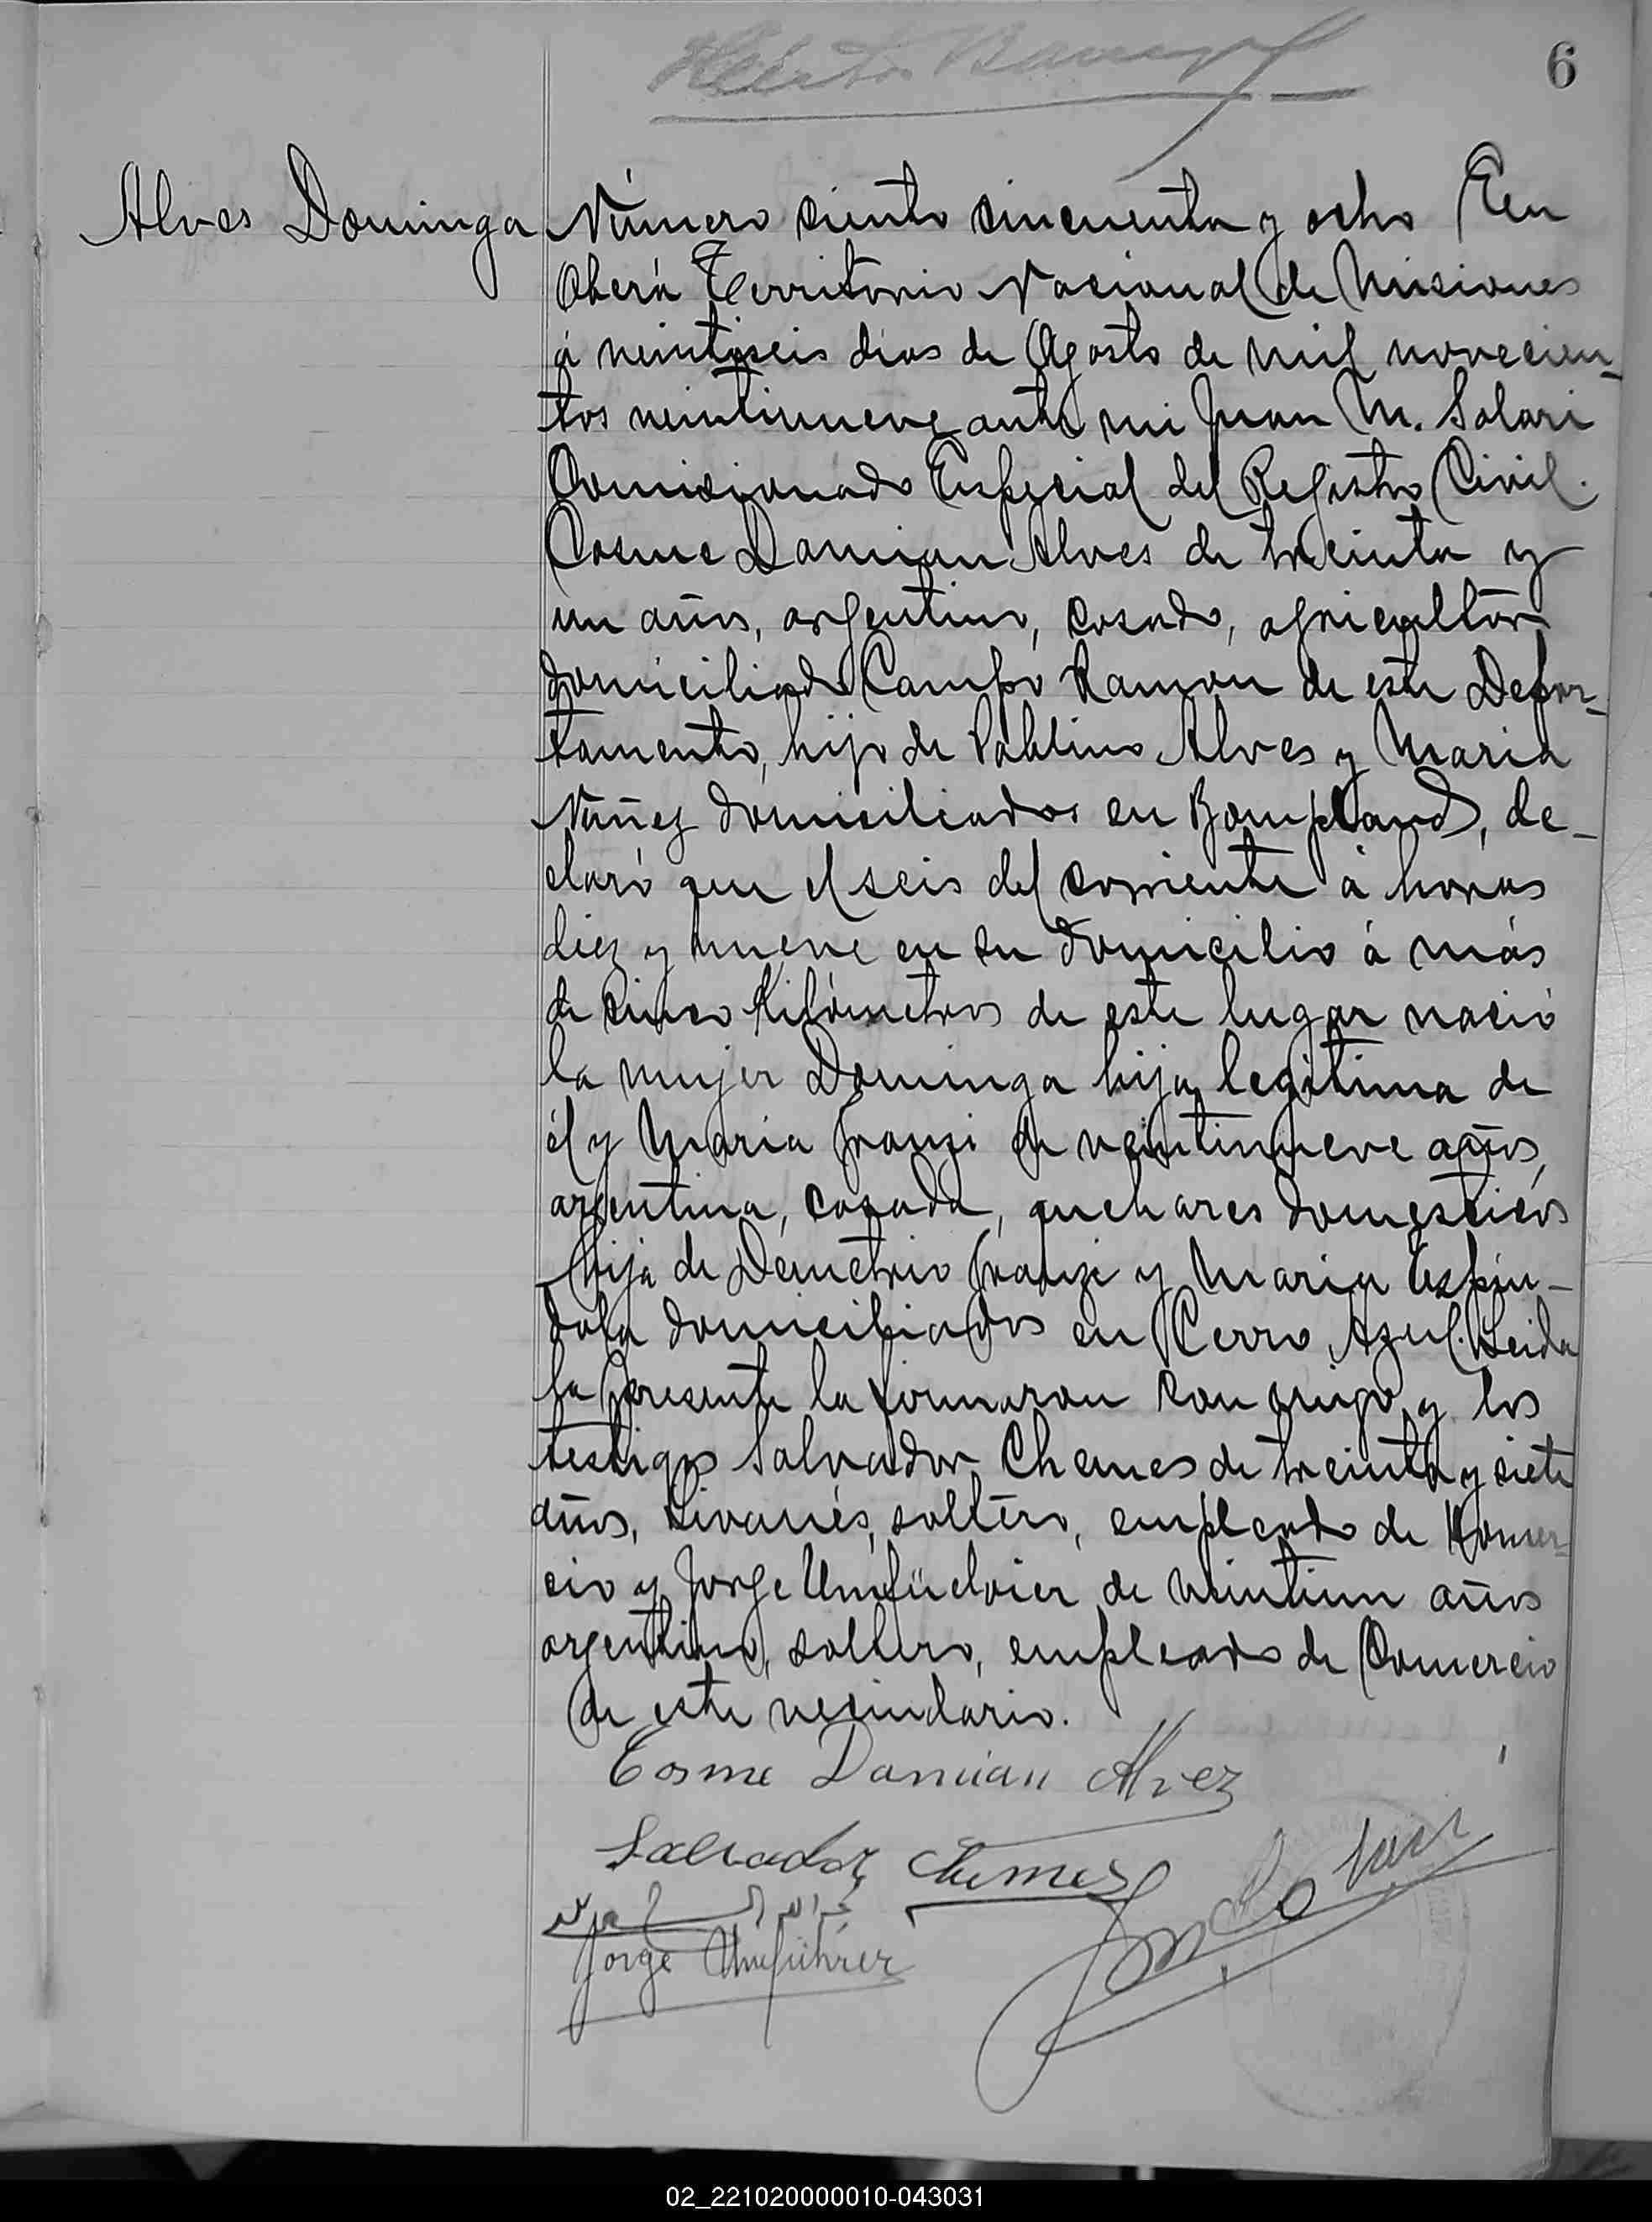 6
Alves Dominga
Número ciento cincuenta y ocho En
Oberá Territorio Nacional de Misiones
á veintiseis dias de Agosto de mil novecien-
tos veintinueve ante mi Juan M. Solari
Comisionado Especial del Registro Civil.
Cosme Damian Alves de treinta y
un años, argentino, casado, agricultor
domiciliado Campo Ramon de este Depar-
tamento, hijo de Pablino Alves y Maria
Núñez domiciliados en Bompland, de-
claró que el seis del corriente á horas
diez y nueve en su domicilio á más
de cinco Kilómetros de este lugar nació
la mujer Dominga hija legitima de
él y Maria de veintinueve años,
argentina, casada, quehares domesticos
hija de Demetrio y Maria Espin-
dola domiciliados en Cerro Azul. Leida
la presente la firmaron con migo y los
testigos Salvador Chemes de treinta y siete
años, Livanés, soltero, empleado de Komer-
cio y Jorge de veintiun años
argentino, soltero, empleado de Comercio
de este vecindario.
Cosme Damian Alvez
Salvador Chemes
Jorge Umführer
02_221020000010-043031